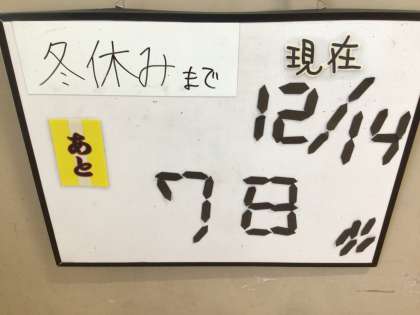 冬休みまで
現在
12/14
あと
78